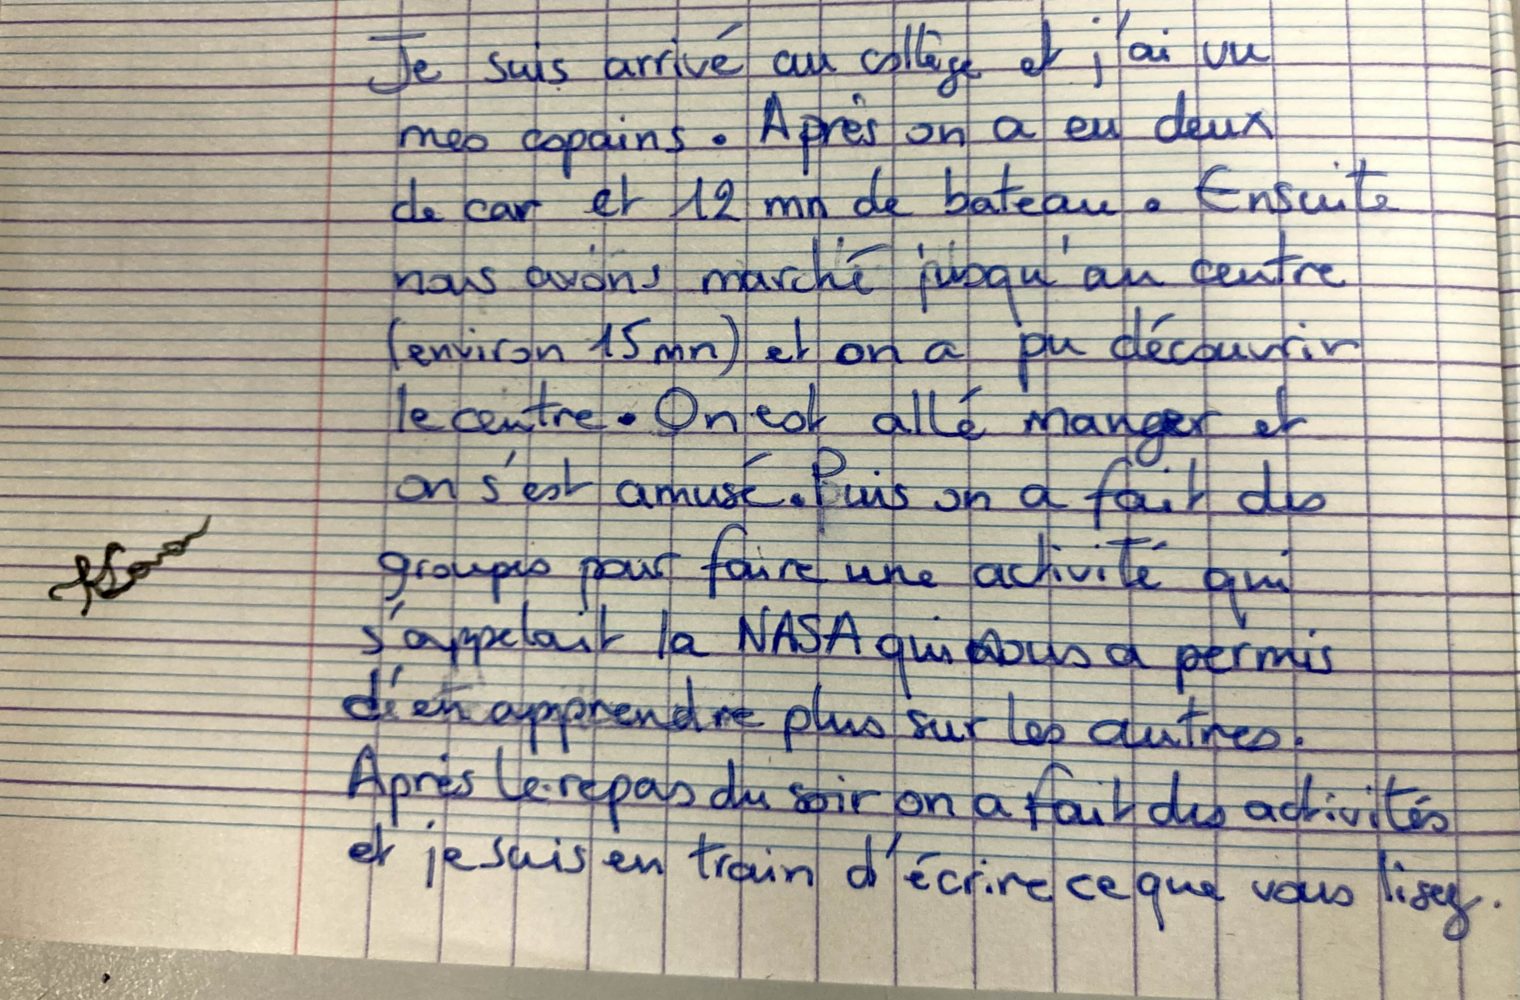 Je suis arrivé au collège et j'ai vu
mes copains. Après on a eu deux
de car et 12 mn de bateau. Ensuite
nous avons marché jusqu'au centre
(environ 15 mn) et on a pu découvrir
le centre. On est allé manger et
on s'est amusé. Puis on a fait des
groupes pour faire une activité qui
s'appelait la NASA qui nous a permis
d'en apprendre plus sur les autres.
Après le repas du soir on a fait des activités
et je suis en train d'écrire ce que vous lisez.